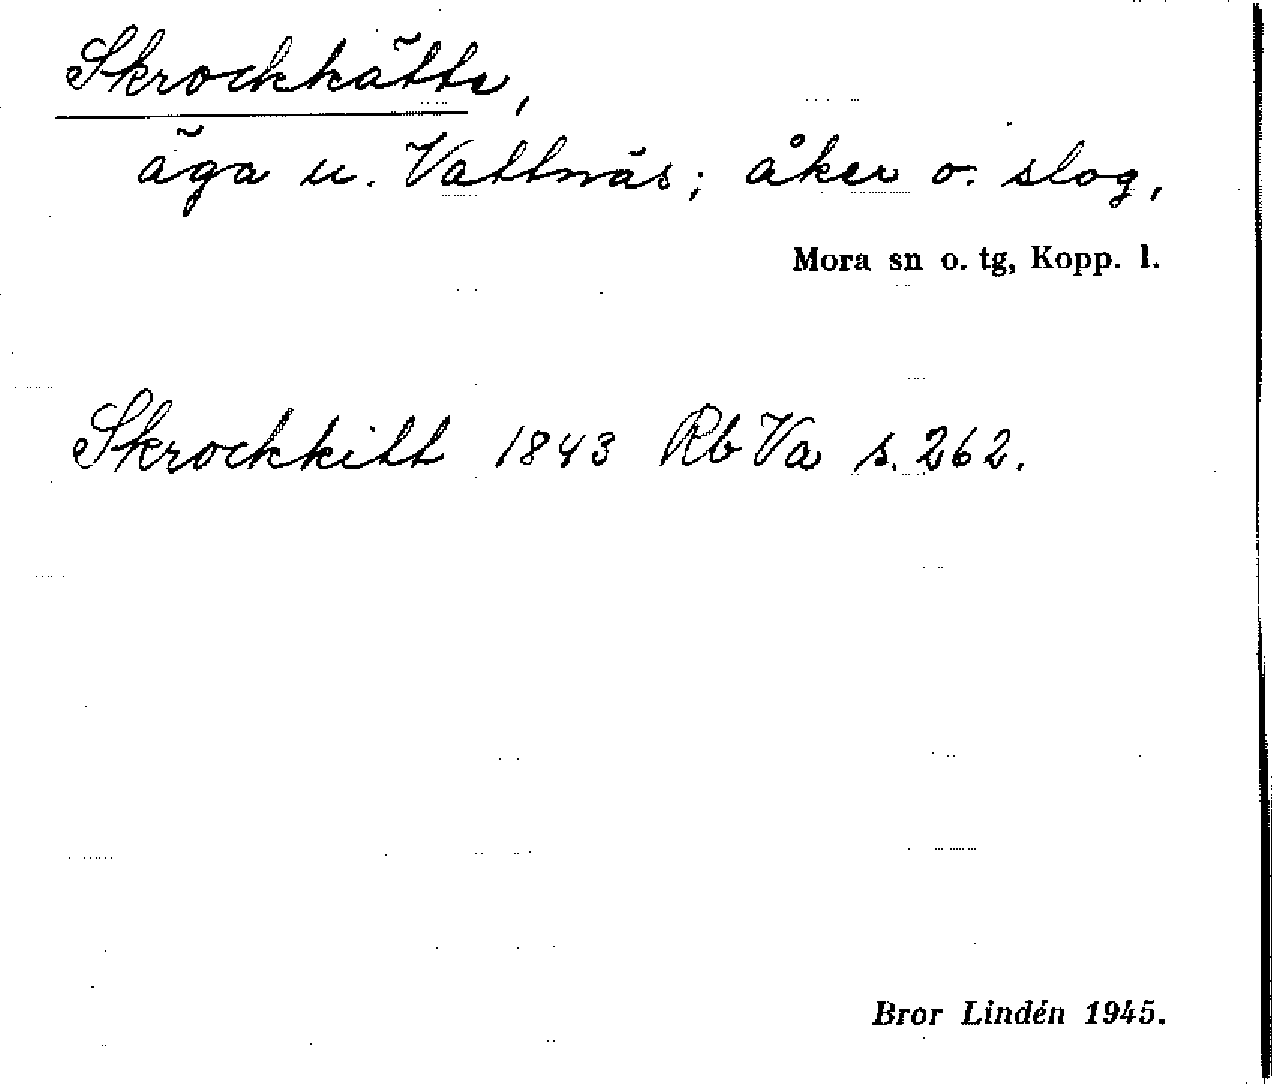 Skrockkätte,
äga u. Vattnäs; åker o. slog,
Mora sn o. tg, Kopp. l.
Skrockkitt 1843 Rb Va s. 262.
Bror Lindén 1945.